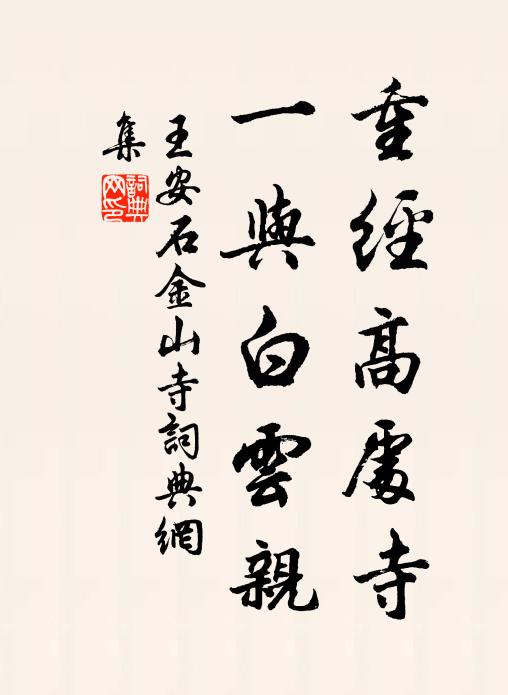 重經高處寺
一與白雲親
王安石金山寺詞典網
集
詞典網印